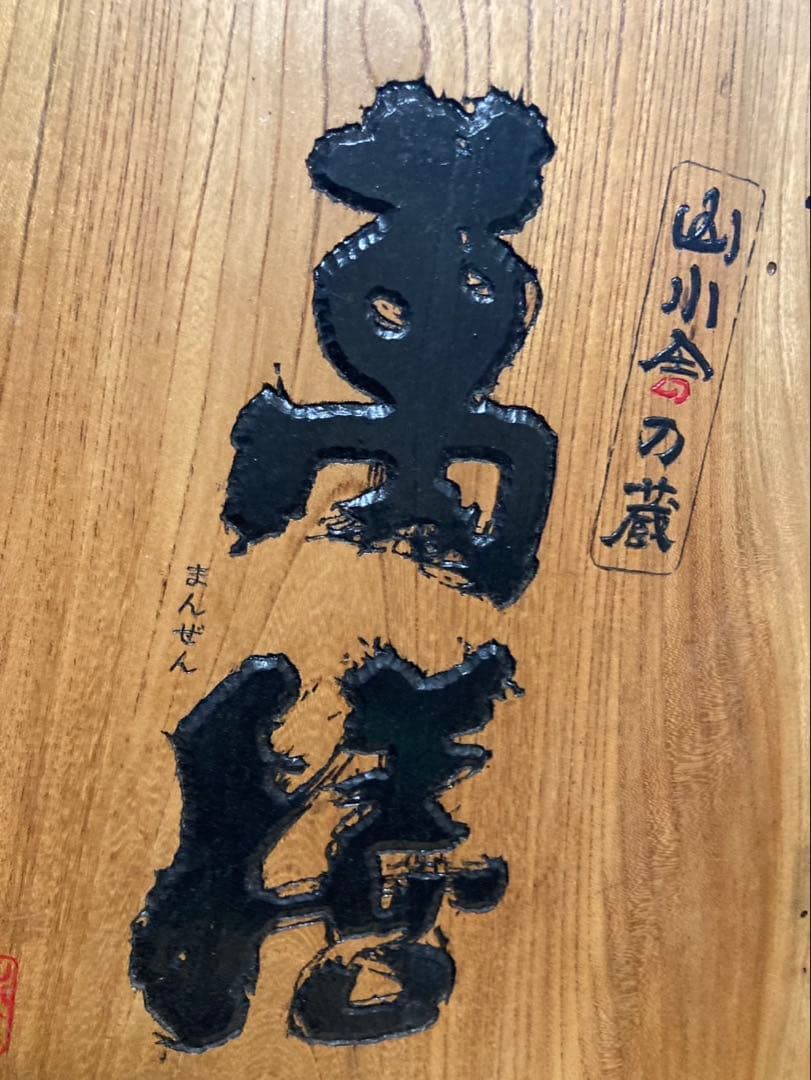 山小舎乃蔵
萬膳
まんぜん